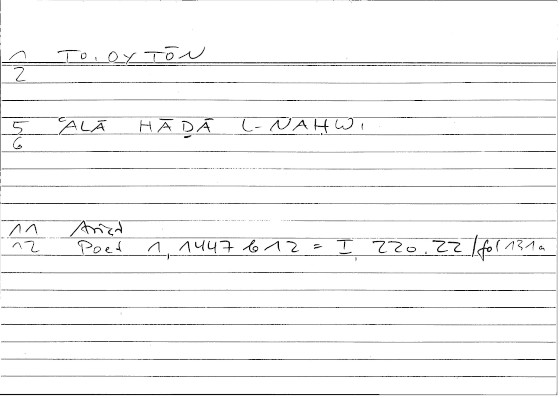 1 TO.OYTŌN
2
5 ʿALĀ HĀḎĀ L-NAḤWI
6
11 Arist
12 Poet 1, 1447 b 12 = I, 220.22 /fol 131a